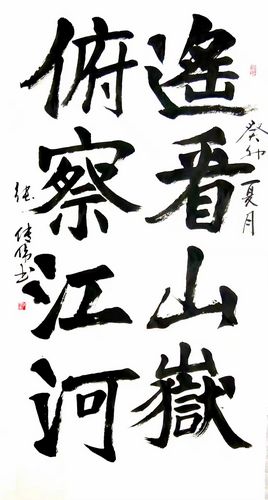 遙看山嶽
俯察江河
癸卯夏月
傳偉书